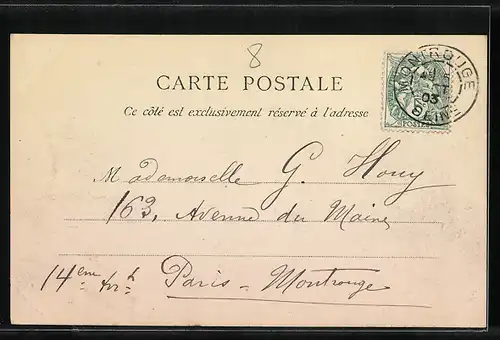 8
CARTE POSTALE
Ce côté est exclusivement réservé à l'adresse
MONTROUGE
03
SEINE
POSTES
Mademoiselle G. Houy
163, Avenue du Maine
14eme Arrt Paris-Montrouge